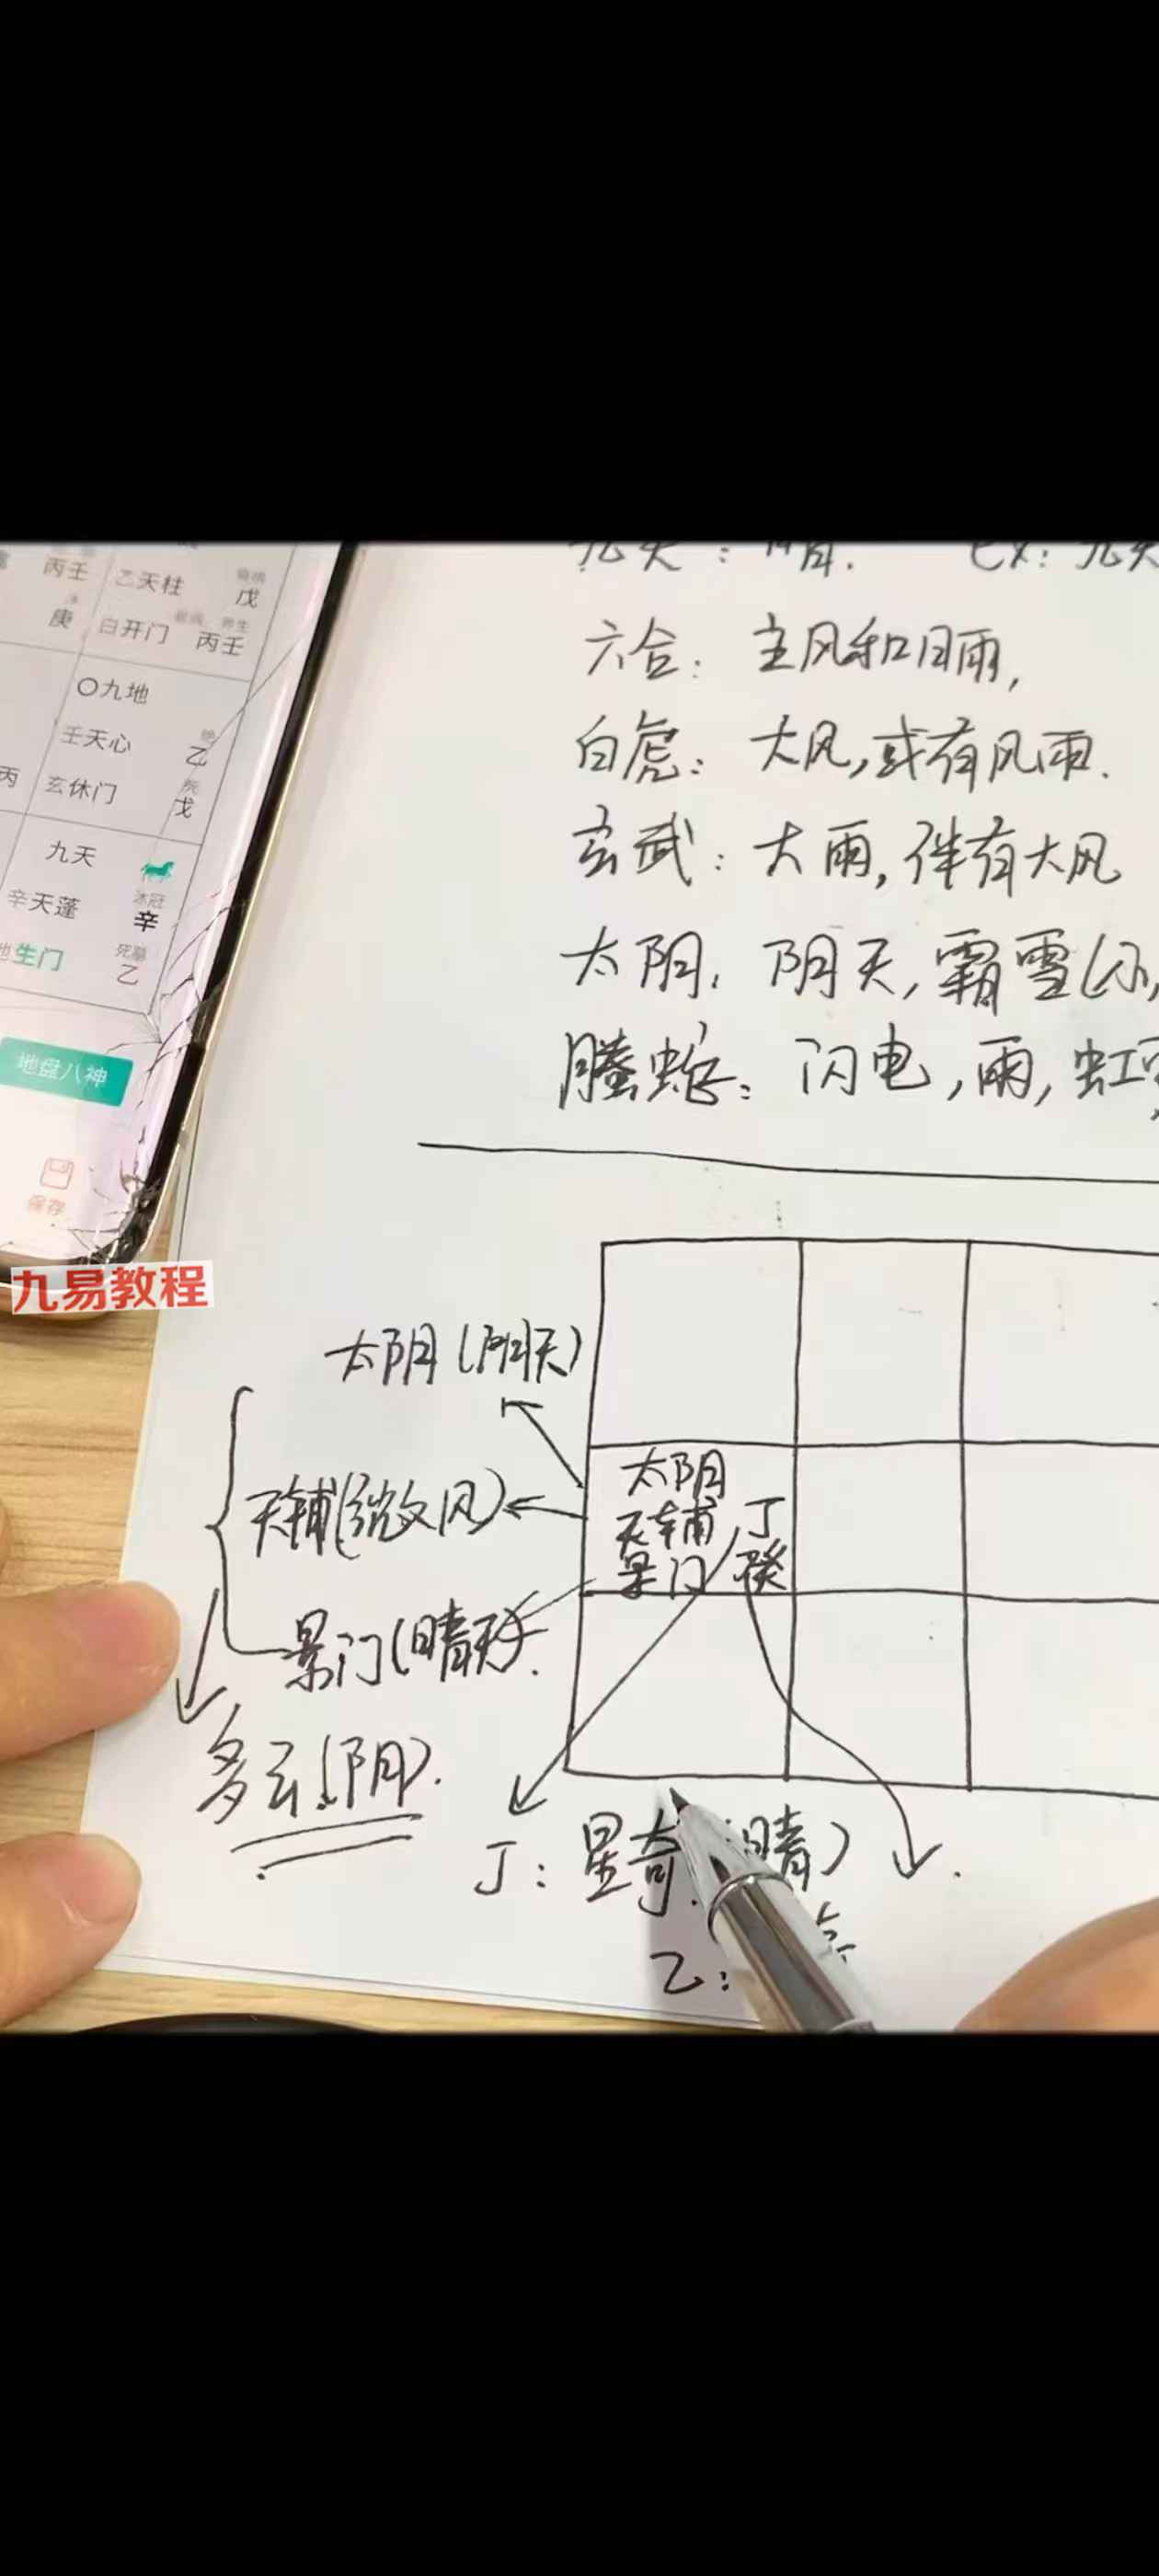 丙壬
乙天柱
戊
庚
白开门
丙壬
〇九地
壬天心
乙
丙
玄休门
戊
九天
辛天蓬
沐冠
辛
生门
死墓
乙
地盘八神
保存
九易教程
九天：晴. ex: 九天
六合：主风和日雨,
白虎：大风,或有风雨.
玄武：大雨,伴有大风
太阴, 阴天,霜雪(小,
腾蛇：闪电,雨,虹
太阴(阴天)
天辅(微风)
景门(晴天).
多云(阴).
太阴
天辅 丁
景门 癸
丁：星奇 晴)
乙：